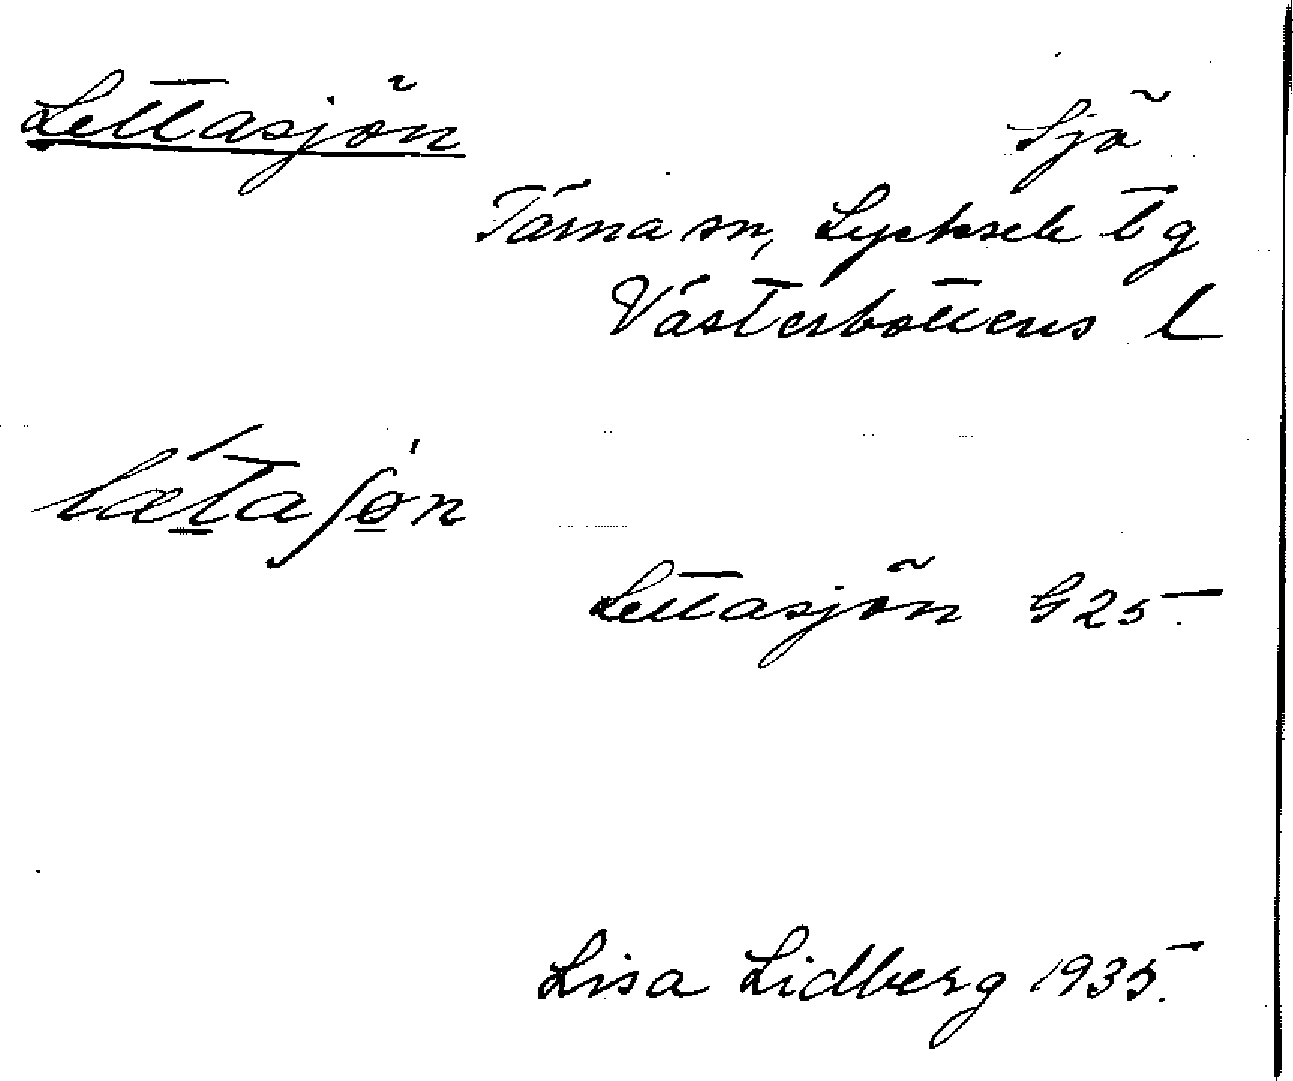 Lettasjön
Sjö
Tärna sn, Lycksele tg
Västerbottens l
lætaʃøn
Lettasjön G25.
Lisa Lidberg 1935.